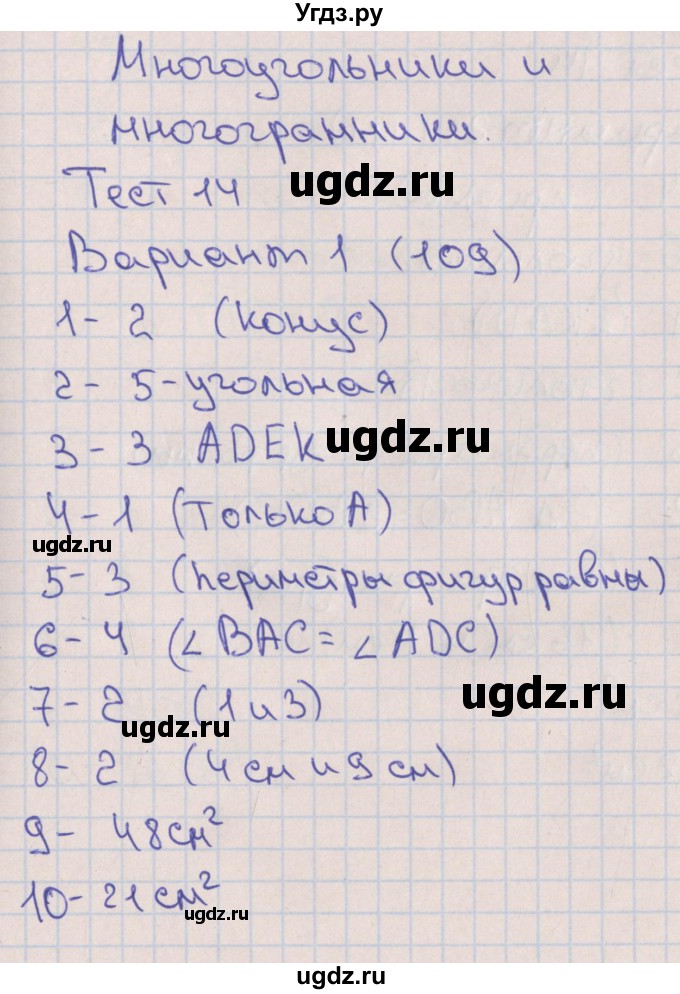 Угдз.ру
Многоугольники и
многогранники.
Тест 14
ugdz.ru
Вариант 1 (109)
1 - 2 (конус)
2 - 5-угольная
3 - 3 ADEK
ugdz.ru
4 - 1 (только А)
ugdz.ru
5 - 3 (периметры фигур равны)
6 - 4 (∠ BAC = ∠ ADC)
7 - 2 (1 и 3)
ugdz.ru
ugdz.ru
8 - 2 (4 см и 9 см)
9 - 48 см²
10 - 21 см²
ugdz.ru
ugdz.ru